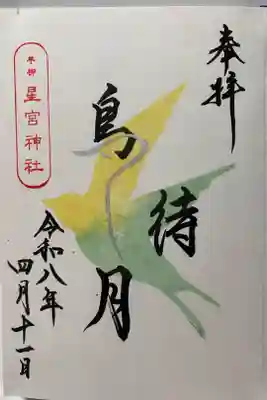 奉拝
鳥待月
令和八年
四月十一日
平柳
星宮神社